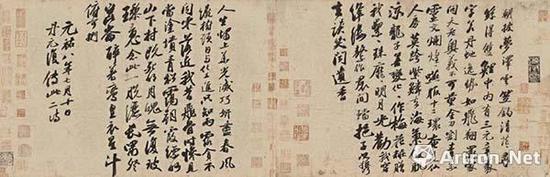 朝披夢澤雲笠釣清茫茫尋
絲得雙鯉中有三元章篆
字若丹蛇逸勢如飛翔歸來
問天老奧義不可量金刀割青素
靈文爛煌煌嚥服十二環奄見仙
人房暮跨紫鱗去海氣侵肌
涼龍子善變化化作梅花妝贈
我纍纍珠靡靡明月光勸我穿
絳縷繫作裙間襠挹子以攜
去談笑聞遺香
人生燭上華光滅巧妍盡春風
繞樹頭日與化工進只知雨露貪不
聞零落近我昔飛骨時慘見
當塗墳青松靄朝霞縹緲
山下村既死明月魄無復玻
璃魂念此一脫灑長嘯登
崑崙醉著鸞皇衣星斗
俯可捫
元祐八年七月十日
丹元復傳此二詩
Artron.Net